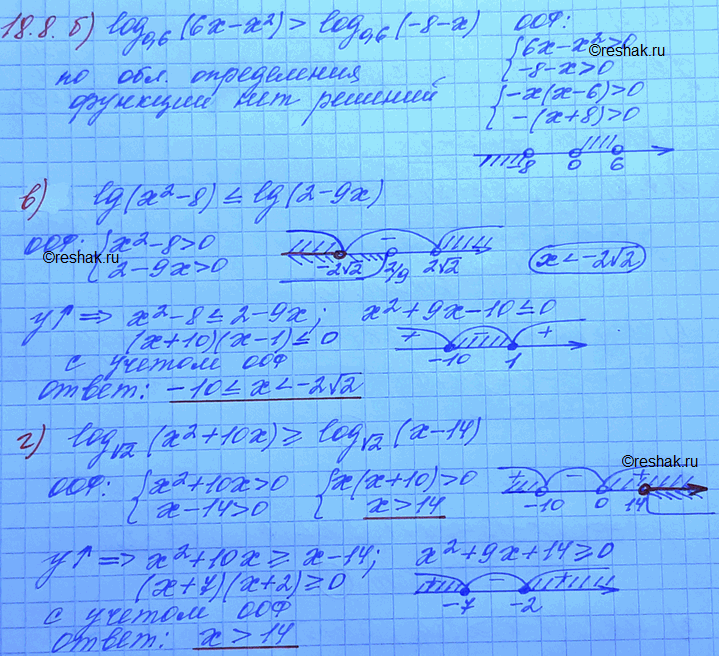 18.8. б) log₀,₆(6x-x²) > log₀,₆(-8-x) ООФ:
{6x-x²>0
-8-x>0
по обл. определения
функции нет решений
{-x(x-6)>0
-(x+8)>0
-8 0 6
©reshak.ru
в) lg(x²-8) ≤ lg(2-9x)
ООФ: {x²-8>0
2-9x>0
©reshak.ru
-2√2 - 2/9 2√2
x<-2√2
y↑ => x²-8 ≤ 2-9x; x²+9x-10 ≤ 0
(x+10)(x-1) ≤ 0
+ - +
-10 1
с учетом ООФ
ответ: -10 ≤ x < -2√2
г) log_√2 (x²+10x) ≥ log_√2 (x-14)
©reshak.ru
ООФ: {x²+10x>0
x-14>0
{x(x+10)>0
x>14
+ - +
-10 0 14
y↑ => x²+10x ≥ x-14; x²+9x+14 ≥ 0
(x+7)(x+2) ≥ 0
+ - +
-7 -2
с учетом ООФ
ответ: x > 14